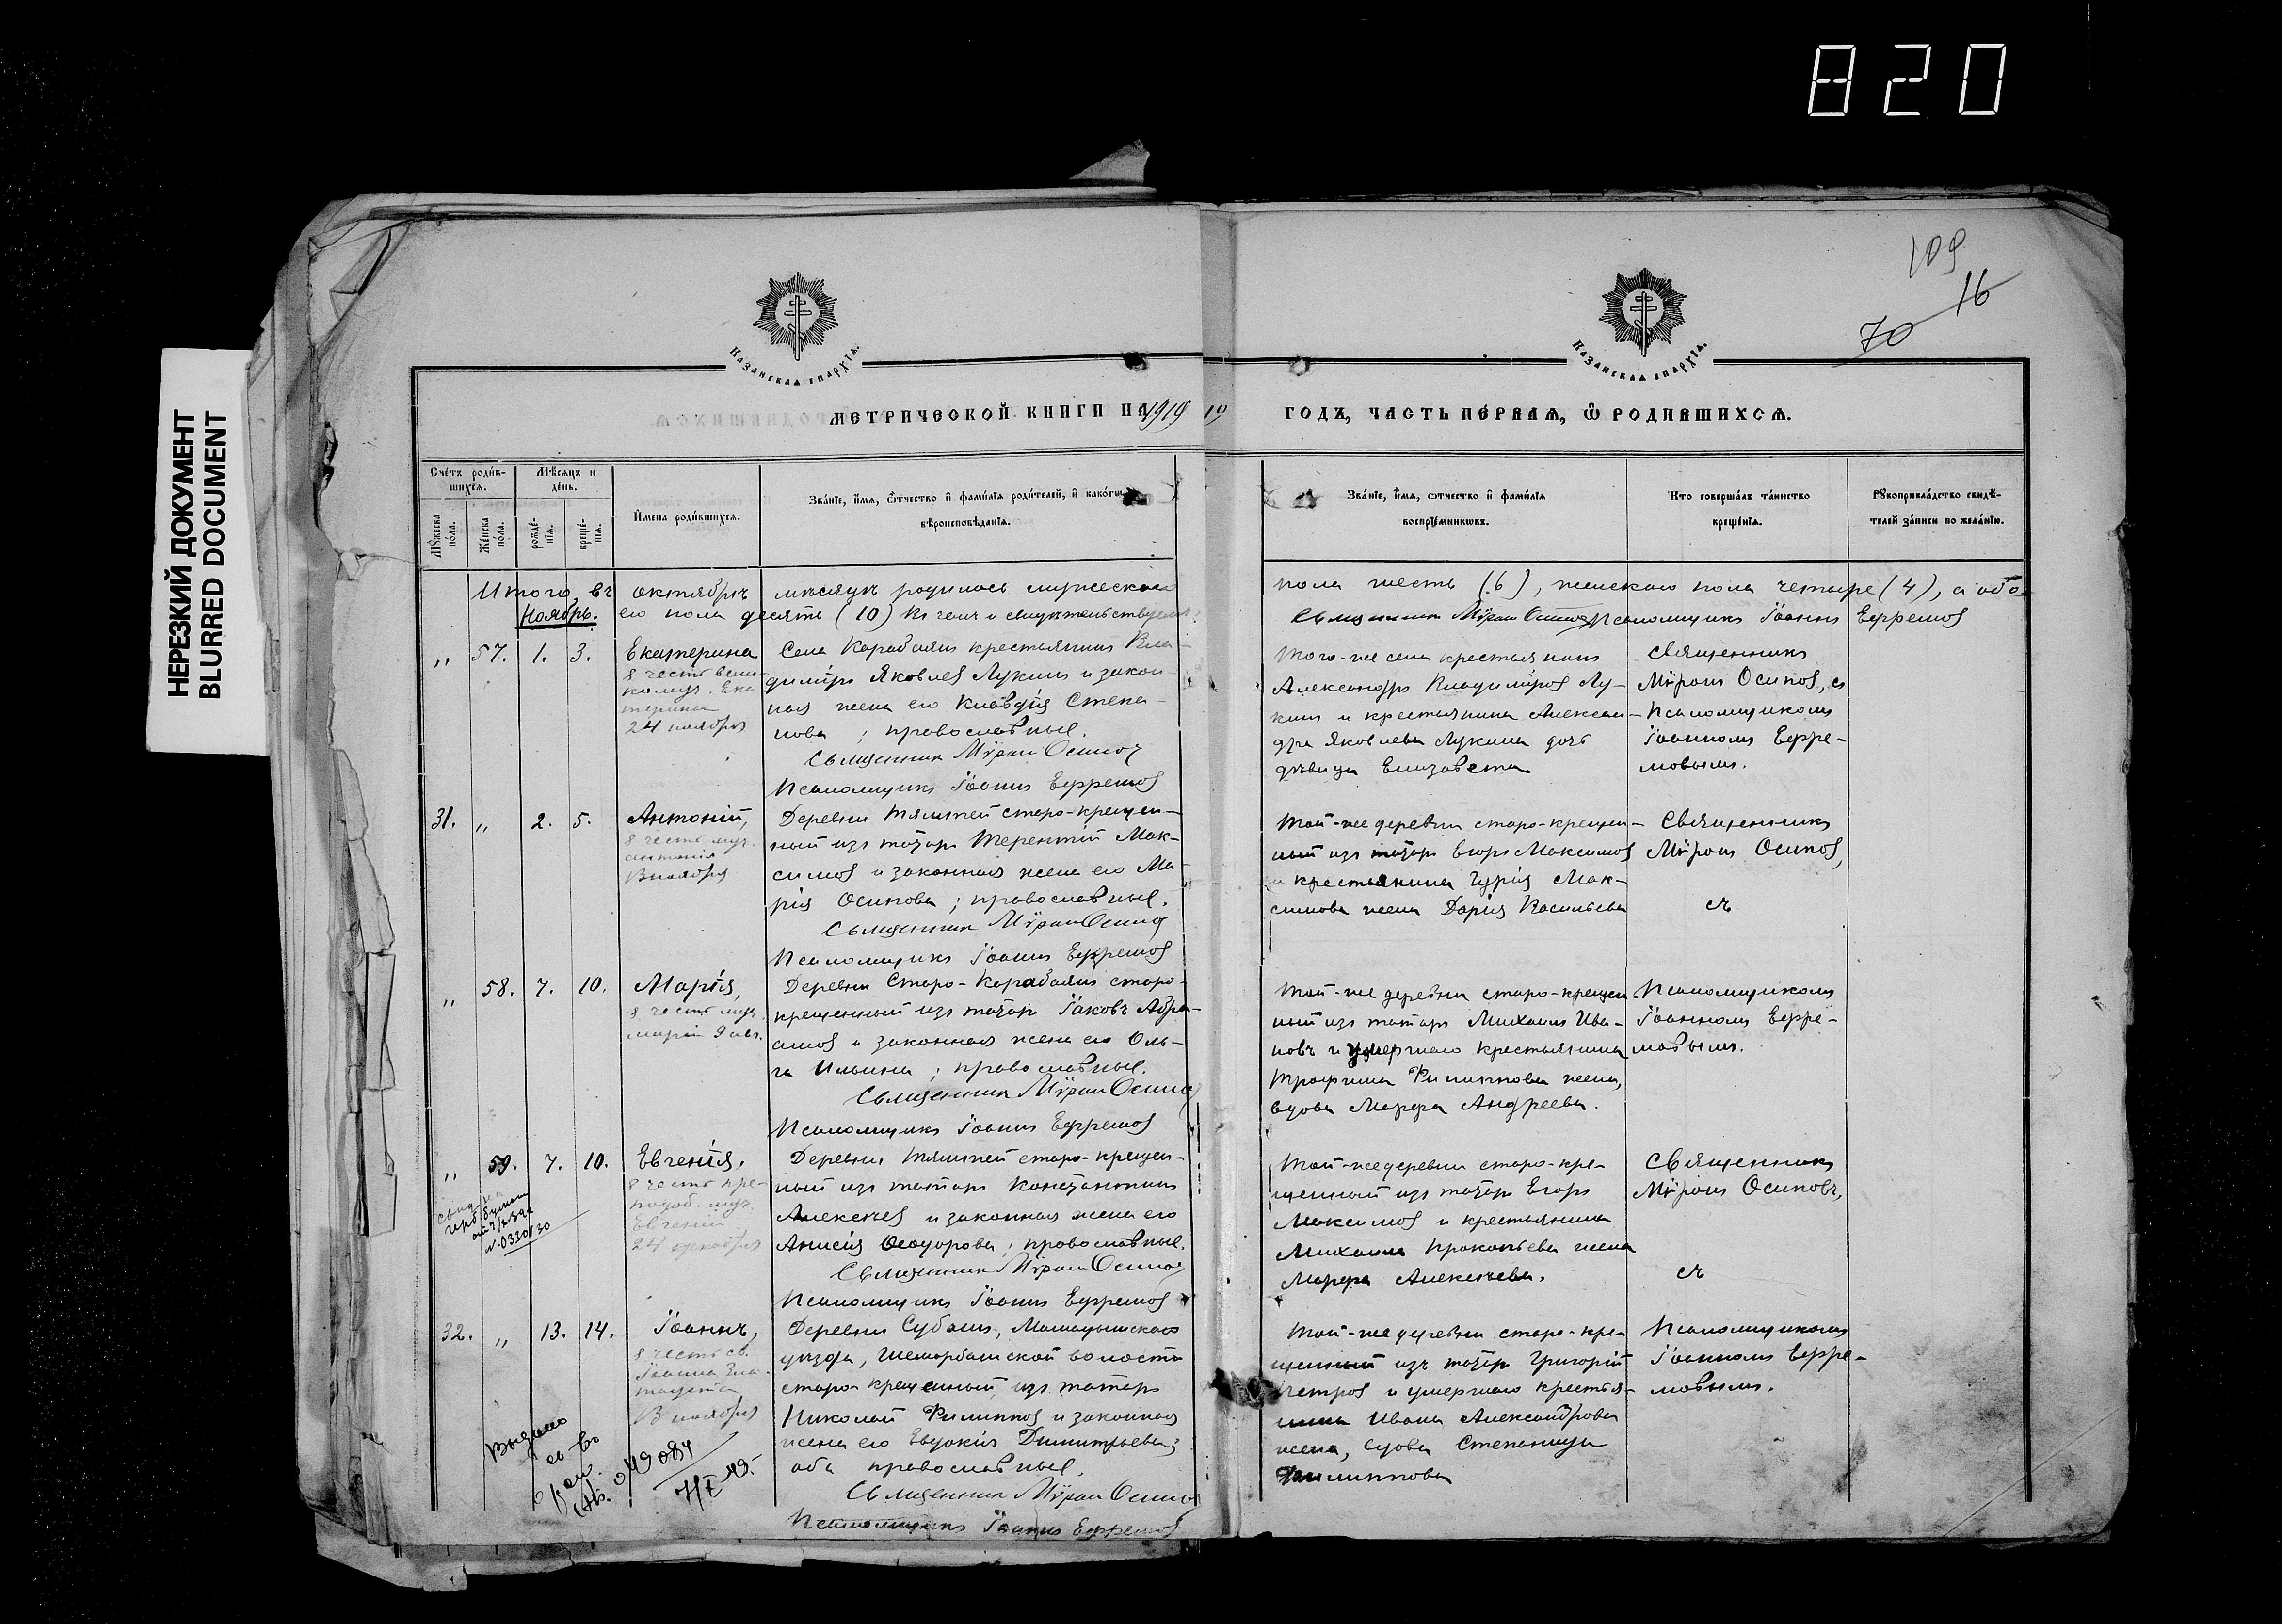 820
НЕРЕЗКИЙ ДОКУМЕНТ
BLURRED DOCUMENT
109
16
70
Казанская епархїа.
Казанская епархїа.
МЕТРИЧЕСКОЙ КНИГИ НА 1919
ГОДЪ, ЧАСТЬ ПЕРВАЯ, Ѡ РОДИВШИХСЯ.
Счетъ родив-
шихся.
Мѣсяцъ и
день.
Мужеска
пола.
Женска
пола.
рожде-
нїя.
креще-
нїя.
Имена родившихся.
Званїе, имя, ѿчество и фамилїя родителей, и какогѡ
вѣроисповѣданїя.
Званїе, имя, ѿчество и фамилїя
воспрїемникѡвъ.
Кто совершалъ таинство
крещенїя.
Рукоприкладство свидѣ-
телей записи по желанїю.
Итого, въ октябрѣ мѣсяцѣ родилось мужескаго
пола шесть (6), женскаго пола четыре (4), а обо-
Ноябрь.
его пола десять (10) въ чемъ и свидѣтельствуемъ:
Священник Мѵрон Осипов Псаломщикъ Іоаннъ Ефремов
„ 57. 1. 3. Екатерина
В честь вели-
комуч. Ека
терины
24 ноября
Села Карабаянъ крестьянинъ Вла-
димiръ Яковлев Лукинъ и закон-
ная жена его Клавдія Степа-
нова ; православные.
Священник Мѵрон Осипов
Псаломщикъ Іоаннъ Ефремов
Того-же села крестьянинъ
Александръ Владимiров Лу-
кин и крестьянина Алексан-
дра Яковлева Лукина дочь
дѣвица Елизавета
Священникъ
Мѵронъ Осипов, съ
Псаломщикомъ
Іоанномъ Ефре-
мовымъ.
31. „ 2. 5. Антоній,
В честь муч.
Антонія
13 ноября
Деревни Тямтей старо-крещен-
ный изъ татаръ Терентій Мак-
симов и законная жена его Ма-
рія Осипова ; православные.
Священник Мѵрон Осипов
Псаломщикъ Іоаннъ Ефремов
Той-же деревни старо-крещен-
ный изъ татаръ Егоръ Максимов
и крестьянина Гурія Мак-
симова жена Дарія Васильева
Священникъ
Мѵронъ Осипов,
съ
„ 58. 7. 10. Марія,
В честь муч.
Маріи 9 авг.
Деревни Старо-Карабаянъ старо-
крещенный изъ татаръ Іаковъ Абра-
амов и законная жена его Оль-
га Ильина ; православные.
Священник Мѵрон Осипов
Псаломщикъ Іоаннъ Ефремов
Той-же деревни старо-крещен
ный изъ татаръ Михаилъ Ива-
новъ и умершаго крестьянина
Трофима Филиппова жена,
вдова Марфа Андреева.
Псаломщикомъ
Іоанномъ Ефре-
мовымъ.
„ 59. 7. 10. Евгенія,
В честь пре-
подоб. муч.
Евгеніи
24 декабря
№ 0330/30
Деревни Тямтей старо-крещен-
ный изъ татаръ Константинъ
Алексѣев и законная жена его
Анисія Ѳеодорова ; православные.
Священник Мѵрон Осипов
Псаломщикъ Іоаннъ Ефремов
Той-же деревни старо-кре-
щенный изъ татаръ Егоръ
Максимов и крестьянина
Михаила Прокопьева жена
Марфа Алексѣева.
Священникъ
Мѵронъ Осиповъ,
съ
32. „ 13. 14. Іоаннъ,
В честь св.
Іоанна Зла-
тоуста
13 ноября
Выдано
св-во
049084
Деревни Субаш, Мамадышскаго
уѣзда, Шеморбашской волости
старо-крещенный изъ татаръ
Николай Филиппов и законная
жена его Евдокія Димитріева;
оба православные.
Священник Мѵрон Осипов
Псаломщикъ Іоаннъ Ефремов
Той-же деревни старо-кре-
щенный изъ татаръ Григорій
Петров и умершаго крестья-
нина Ивана Александрова
жена, вдова Степанида
Филиппова
Псаломщикомъ
Іоанномъ Ефре-
мовымъ.